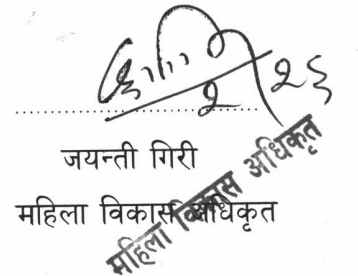 २ २६
जयन्ती गिरी
महिला विकास अधिकृत
महिला विकास अधिकृत